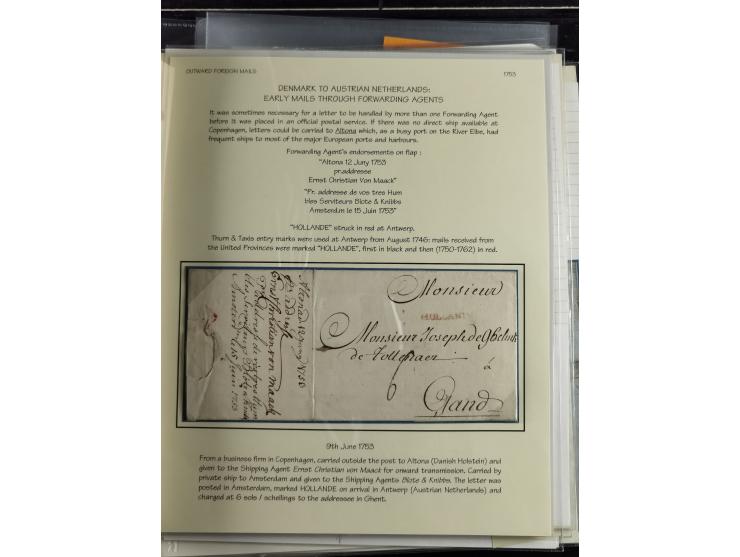 OUTWARD FOREIGN MAILS
1753
DENMARK TO AUSTRIAN NETHERLANDS:
EARLY MAILS THROUGH FORWARDING AGENTS
It was sometimes necessary for a letter to be handled by more than one Forwarding Agent
before it was placed in an official postal service. If there was no direct ship available at
Copenhagen, letters could be carried to Altona which, as a busy port on the River Elbe, had
frequent ships to most of the major European ports and harbours.
Forwarding Agent's endorsements on flap :
"Altona 12 Juny 1753
pr.addresse
Ernst Christian Von Maack"
"Pr. addresse de vos tres Hum
bles Serviteurs Blote & Knibbs
Amsterd.m le 15 Juin 1753"
"HOLLANDE" struck in red at Antwerp.
Thurn & Taxis entry marks were used at Antwerp from August 1746: mails received from
the United Provinces were marked "HOLLANDE", first in black and then (1750-1762) in red.
Monsieur
HOLLAN
Monsieur Joseph de
de Tollenaer
à
6
Gand
9th June 1753
From a business firm in Copenhagen, carried outside the post to Altona (Danish Holstein) and
given to the Shipping Agent Ernst Christian von Maack for onward transmission. Carried by
private ship to Amsterdam and given to the Shipping Agents Blote & Knibbs. The letter was
posted in Amsterdam, marked HOLLANDE on arrival in Antwerp (Austrian Netherlands) and
charged at 6 sols / schellings to the addressee in Ghent.